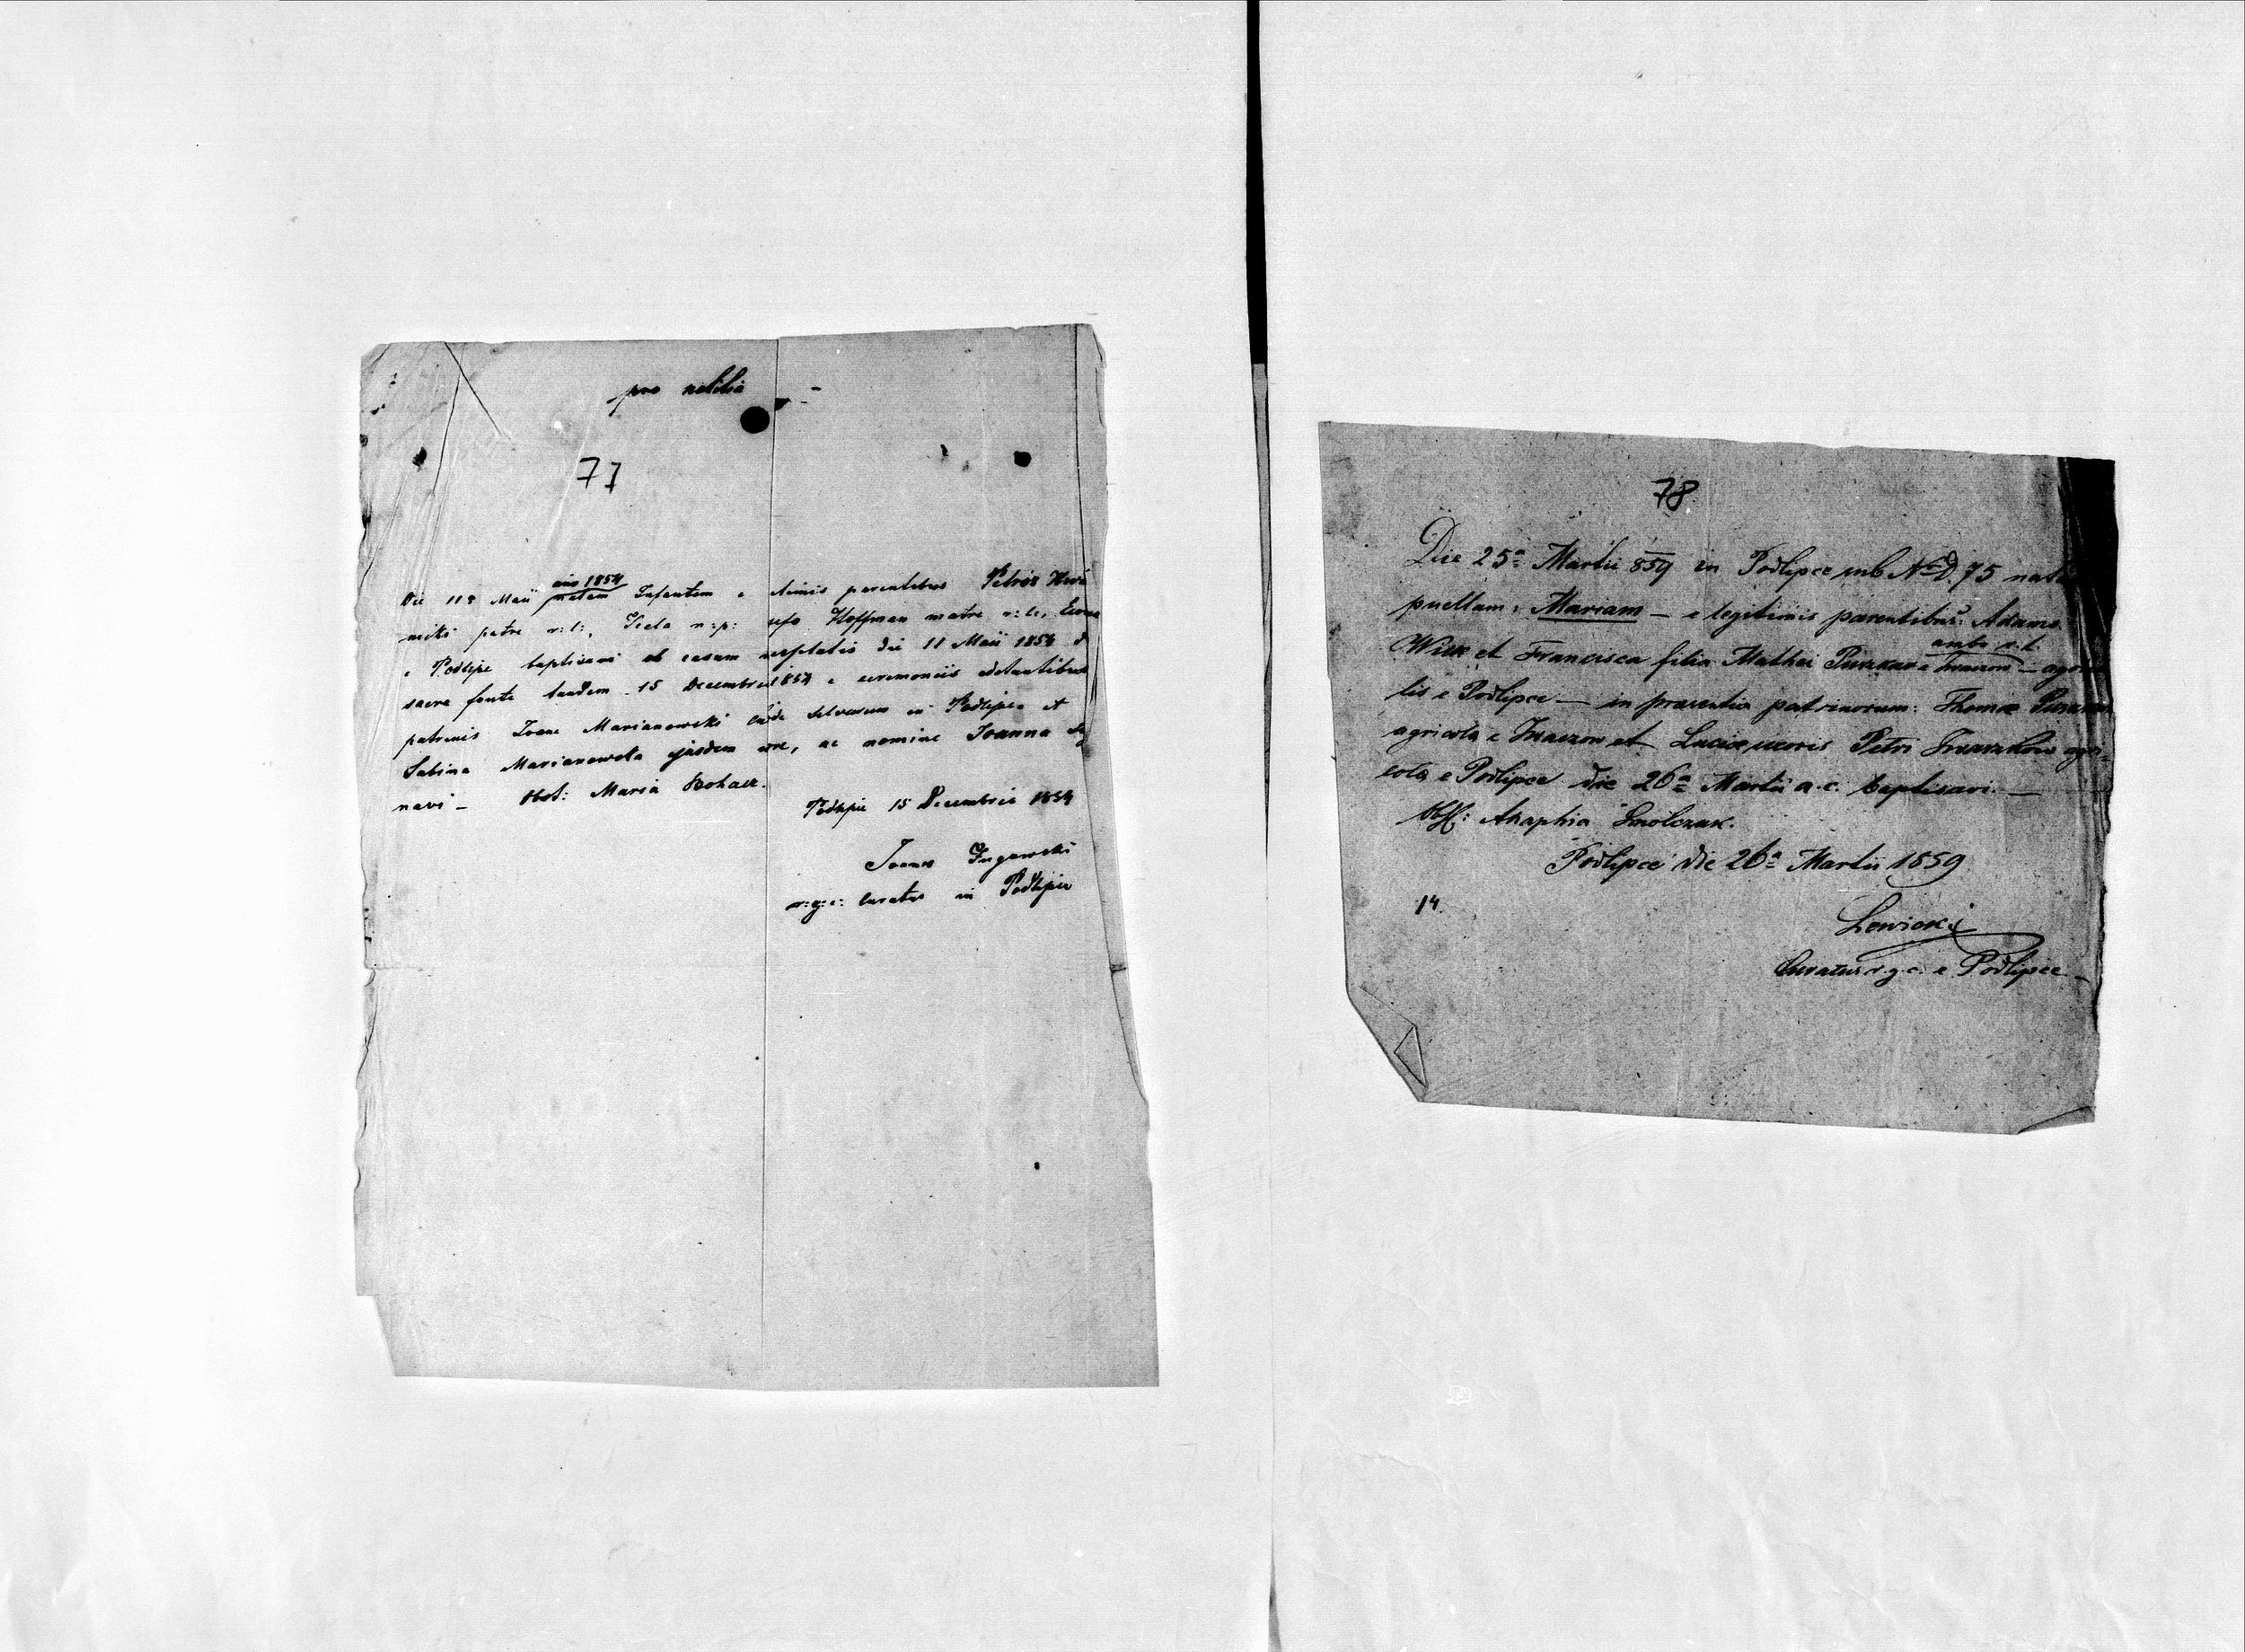 pro notitia
77
Die 11 Maii natam Infantem e legitimis parentibus Petro
ano 1854
patre r: l:, Tecla n: p: Hoffman matre r: l:,
e Podlipce baptisavi ob casum necessitatis die 11 Maii 1854
sacro fonte tandem 15 Decembris 1854 e ceremoniis adstantibus
patrinis Joane Marianowski custode silvarum in Podlipce et
Sabina Marianowska ejusdem uxore, ac nomine Joanna
navi — Obst: Maria Bohacz.
Podlipce 15 Decembris 1854
Joannes
r: g: c: Curatus in Podlipce
78
Die 25ª Martii 859 in Podlipce sub Nro D. 75 natam
puellam: Mariam — e legitimis parentibus: Adamo
ambo r. l.
Wilk et Francisca filia Mathei e —
lis e Podlipce — in praesentia patrinorum: Thomae
agricola e et Luciae uxoris Petri agri-
cola e Podlipce die 26ª Martii a. c. baptisavi. —
Obst: Ahaphia Smolczuk.
Podlipce die 26ª Martii 1859
14.
Lewicki
Curatus r. g. c. e Podlipce —